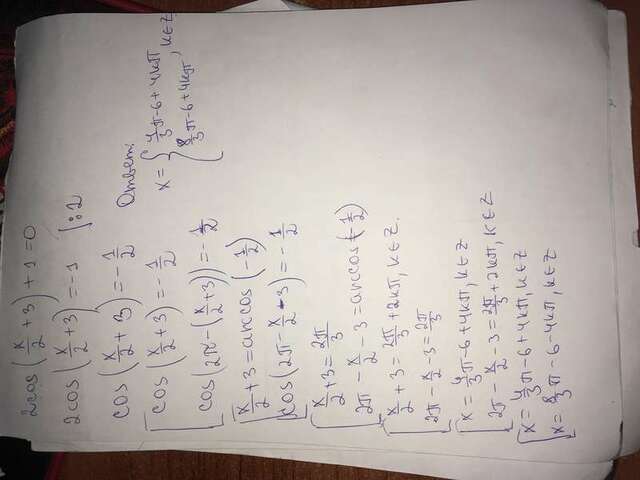 2cos(x/2 + 3) + 1 = 0
2cos(x/2 + 3) = -1 |:2
cos(x/2 + 3) = -1/2
[ cos(x/2 + 3) = -1/2
cos(2π - (x/2 + 3)) = -1/2
[ x/2 + 3 = arccos(-1/2)
cos(2π - x/2 - 3) = -1/2
[ x/2 + 3 = 2π/3
2π - x/2 - 3 = arccos(-1/2)
[ x/2 + 3 = 2π/3 + 2kπ, k∈Z.
2π - x/2 - 3 = 2π/3
[ x = 4/3 π - 6 + 4kπ, k∈Z
2π - x/2 - 3 = 2π/3 + 2kπ, k∈Z
[ x = 4/3 π - 6 + 4kπ, k∈Z
x = 8/3 π - 6 - 4kπ, k∈Z
Ответ:
x = { 4/3 π - 6 + 4kπ
8/3 π - 6 + 4kπ , k∈Z